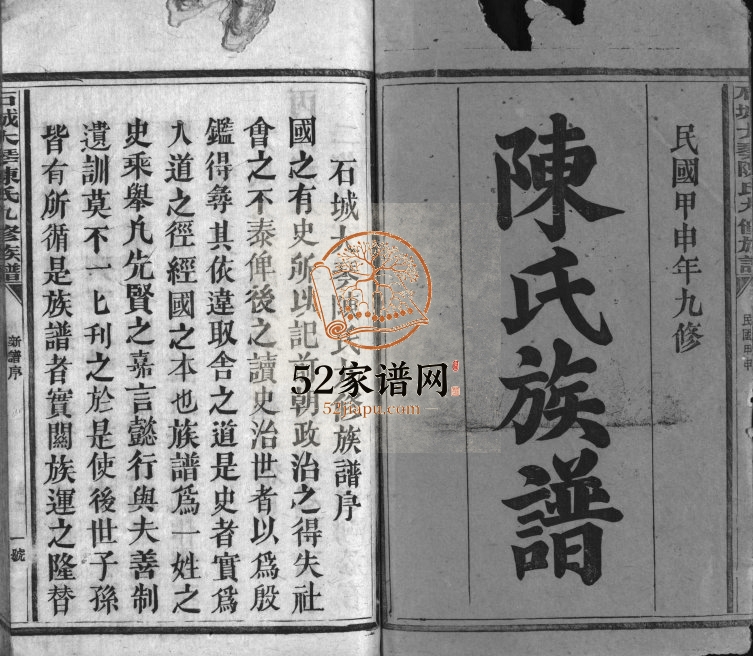 民國甲申年九修
陳氏族譜
石城大琴陳氏九修族譜序
國之有史所以記前朝政治之得失社
會之不泰俾後之讀史治世者以爲殷
鑑得尋其依違取舍之道是史者實爲
人道之徑經國之本也族譜爲一姓之
史乘舉凢先賢之嘉言懿行與夫善制
遺訓莫不一匕刋之於是使後世子孫
皆有所循是族譜者實關族運之隆替
石城大琴陳氏九修族譜
新譜序
一號
石城大琴陳氏九修族譜
民國甲申
52家谱网
52jiapu.com